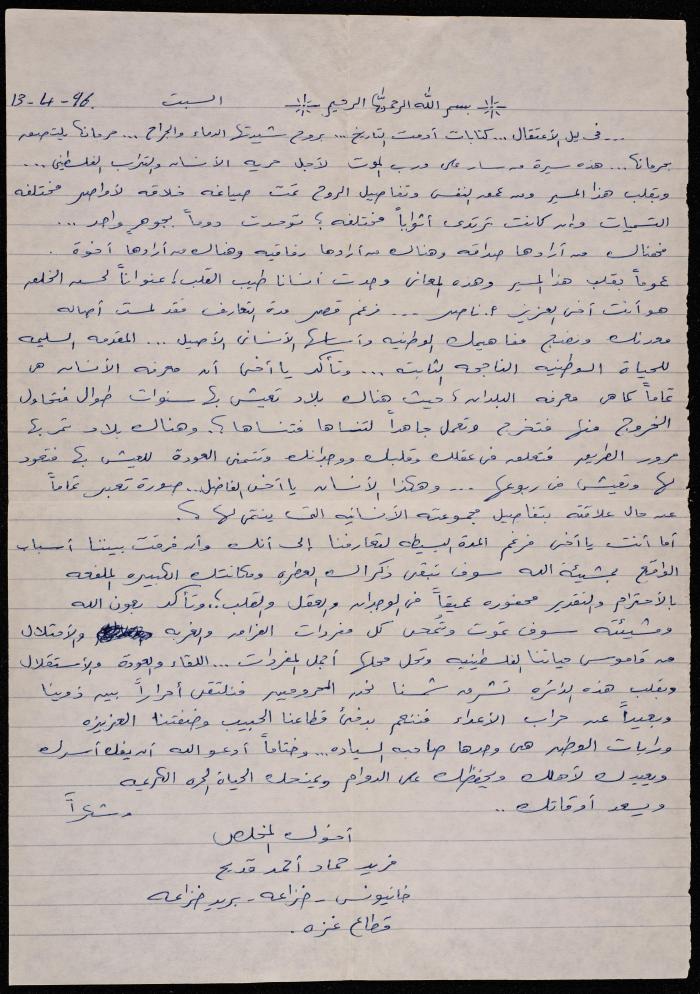 13-4-96 السبت بسم الله الرحمن الرحيم
... في ليل الاعتقال... كتابات أدمت التاريخ... بروح شيدتها الدماء والجراح... حرمانها يلتصق
بحرماننا... هذه سيرة من سار على درب الموت لأجل حرية الإنسان والتراب الفلسطيني...
وبقلب هذا المسير ومن عمق النفس وتفاصيل الروح تمت صياغة خلاقة لأواصر مختلفة
التسميات وإن كانت ترتدي أثواباً مختلفة؛ توحدت دوماً بجوهر واحد...
فهناك من أرادها صداقة وهناك من أرادها رفاقية وهناك من أرادها أخوة.
عموماً بقلب هذا المسير وهذه المعاني وجدت إنسانا طيب القلب! عنواناً لحسن الخلق
هو أنت أخي العزيز أ. ناصر... فرغم قصر مدة التعارف فقد لمست أصالة
معدنك ونضج مفاهيمك الوطنية وأساسها الإنساني الأصيل... المقدمة السليمة
للحياة الوطنية الناجحة الثابتة... وتأكد يا أخي أن معرفة الإنسان هي
تماماً كما هي معرفة البلدان؛ حيث هناك بلاد تعيش بها سنوات طوال فتحاول
الخروج منها فتخرج وتعمل جاهداً لتنساها فتنساها؟. وهناك بلاد تمر بها
مرور الطريق فتعلق في عقلك وقلبك ووجدانك وتتمنى العودة للعيش بها فتعود
لها وتعيش في ربوعها... وهكذا الإنسان يا أخي الفاضل... صورة تعبر تماماً
عن حال علاقته بتفاصيل مجموعته الإنسانية التي ينتمي لها؟.
أما أنت يا أخي فرغم المدة البسيطة لتعارفنا إلى أنك وأن فرقت بيننا أسباب
الواقع بمشيئة الله سوف تبقى ذكراك العطرة ومكانتك الكبيرة الملفحة
بالاحترام والتقدير محفورة عميقاً في الوجدان والعقل والقلب؛. وتأكد بعون الله
ومشيئته سوف تموت وتمحى كل مفردات الفراق والغربة والاحتلال
من قاموس حياتنا الفلسطينية وتحل محلها أجمل المفردات... اللقاء والعودة والاستقلال
وبقلب هذه الدائرة تشرق شمسنا نحن المحرومين فنلتقي أحراراً بين ذوينا
وبعيداً عن حراب الأعداء فننعم بدفئ قطاعنا الحبيب وضفتنا العزيزة
ورايات الوطن هي وحدها صاحبة السيادة... وختاماً أدعو الله أن يفك أسرك
ويعيدك لأهلك ويحفظك على الدوام ويمنحك الحياة الحرة الكريمة
ويسعد أوقاتك.. وشكراً
أخوك المخلص
فريد حماد أحمد قديح
خانيونس - خزاعة - بريد خزاعة
قطاع غزة.